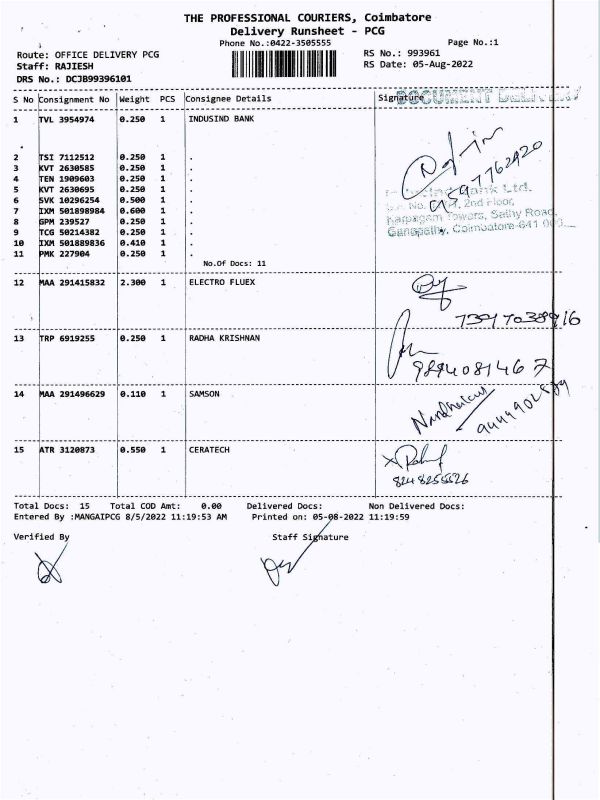 THE PROFESSIONAL COURIERS, Coimbatore
Delivery Runsheet - PCG
Phone No.:0422-3505555
Page No.:1
Route: OFFICE DELIVERY PCG
RS No.: 993961
Staff: RAJIESH
RS Date: 05-Aug-2022
DRS No.: DCJB99396101
S No Consignment No Weight PCS Consignee Details Signature
DOCUMENT DELIVERY
1 TVL 3954974 0.250 1 INDUSIND BANK
2 TSI 7112512 0.250 1 .
3 KVT 2630585 0.250 1 .
4 TEN 1909603 0.250 1 .
5 KVT 2630695 0.250 1 .
6 SVK 10296254 0.500 1 .
7 IXM 501898984 0.600 1 .
8 GPM 239527 0.250 1 .
9 TCG 50214382 0.250 1 .
10 IXM 501889836 0.410 1 .
11 PMK 227904 0.250 1 .
Bank Ltd.
2nd Floor,
Karpagam Towers, Sathy Road,
Ganapathy, Coimbatore-641
No.Of Docs: 11
12 MAA 291415832 2.300 1 ELECTRO FLUEX
7397038916
13 TRP 6919255 0.250 1 RADHA KRISHNAN
9894081467
14 MAA 291496629 0.110 1 SAMSON
15 ATR 3120873 0.550 1 CERATECH
8248255526
Total Docs: 15 Total COD Amt: 0.00 Delivered Docs: Non Delivered Docs:
Entered By :MANGAIPCG 8/5/2022 11:19:53 AM Printed on: 05-08-2022 11:19:59
Verified By Staff Signature